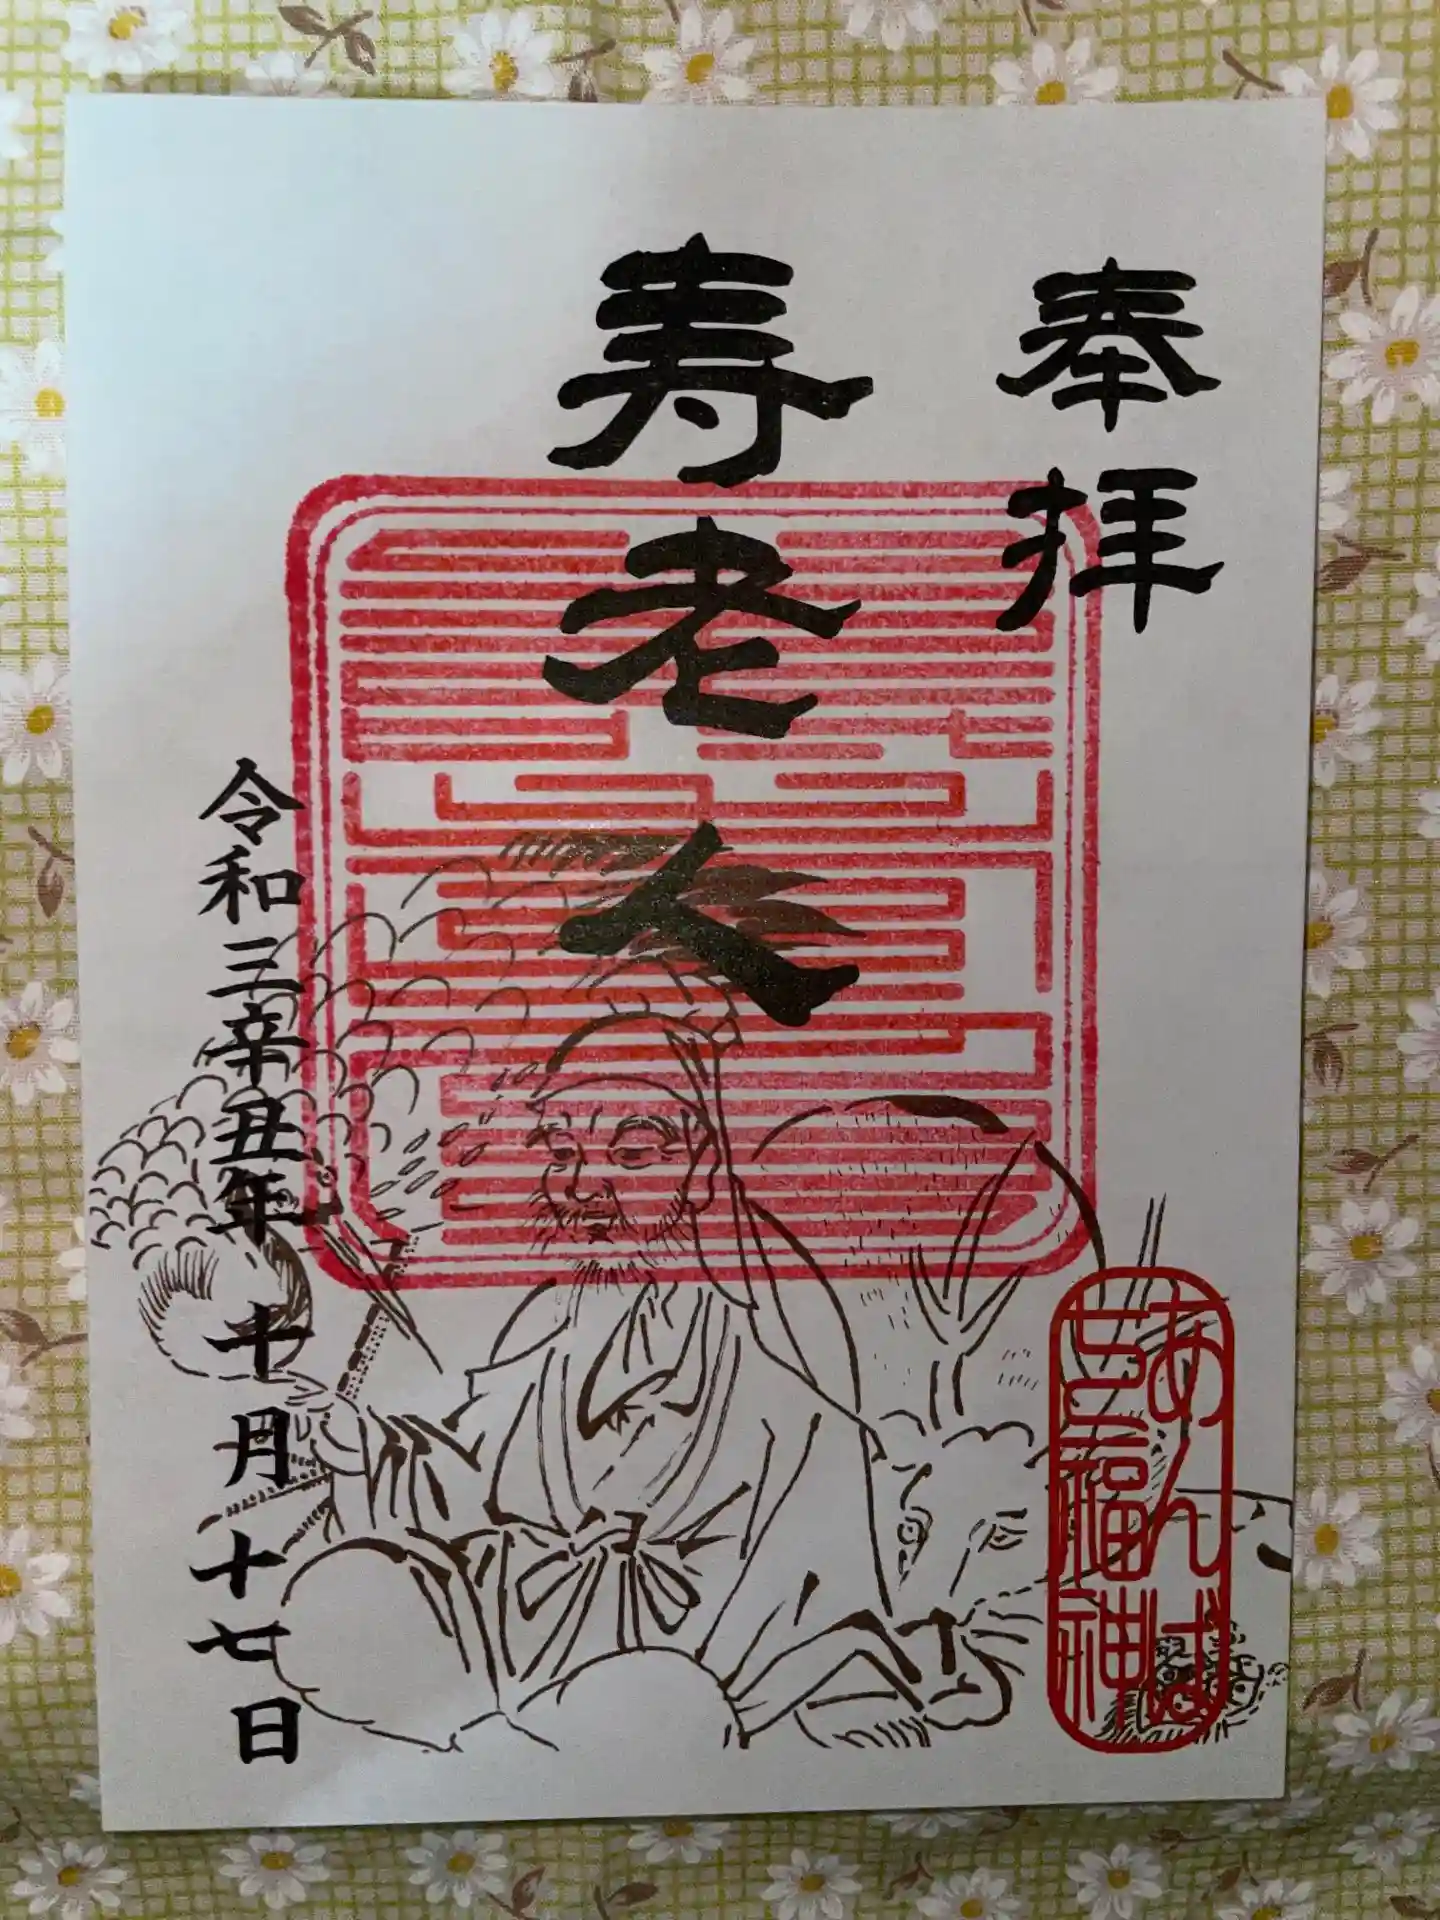 奉拝
寿老人
令和三辛丑年 十月十七日
あんば
七福神